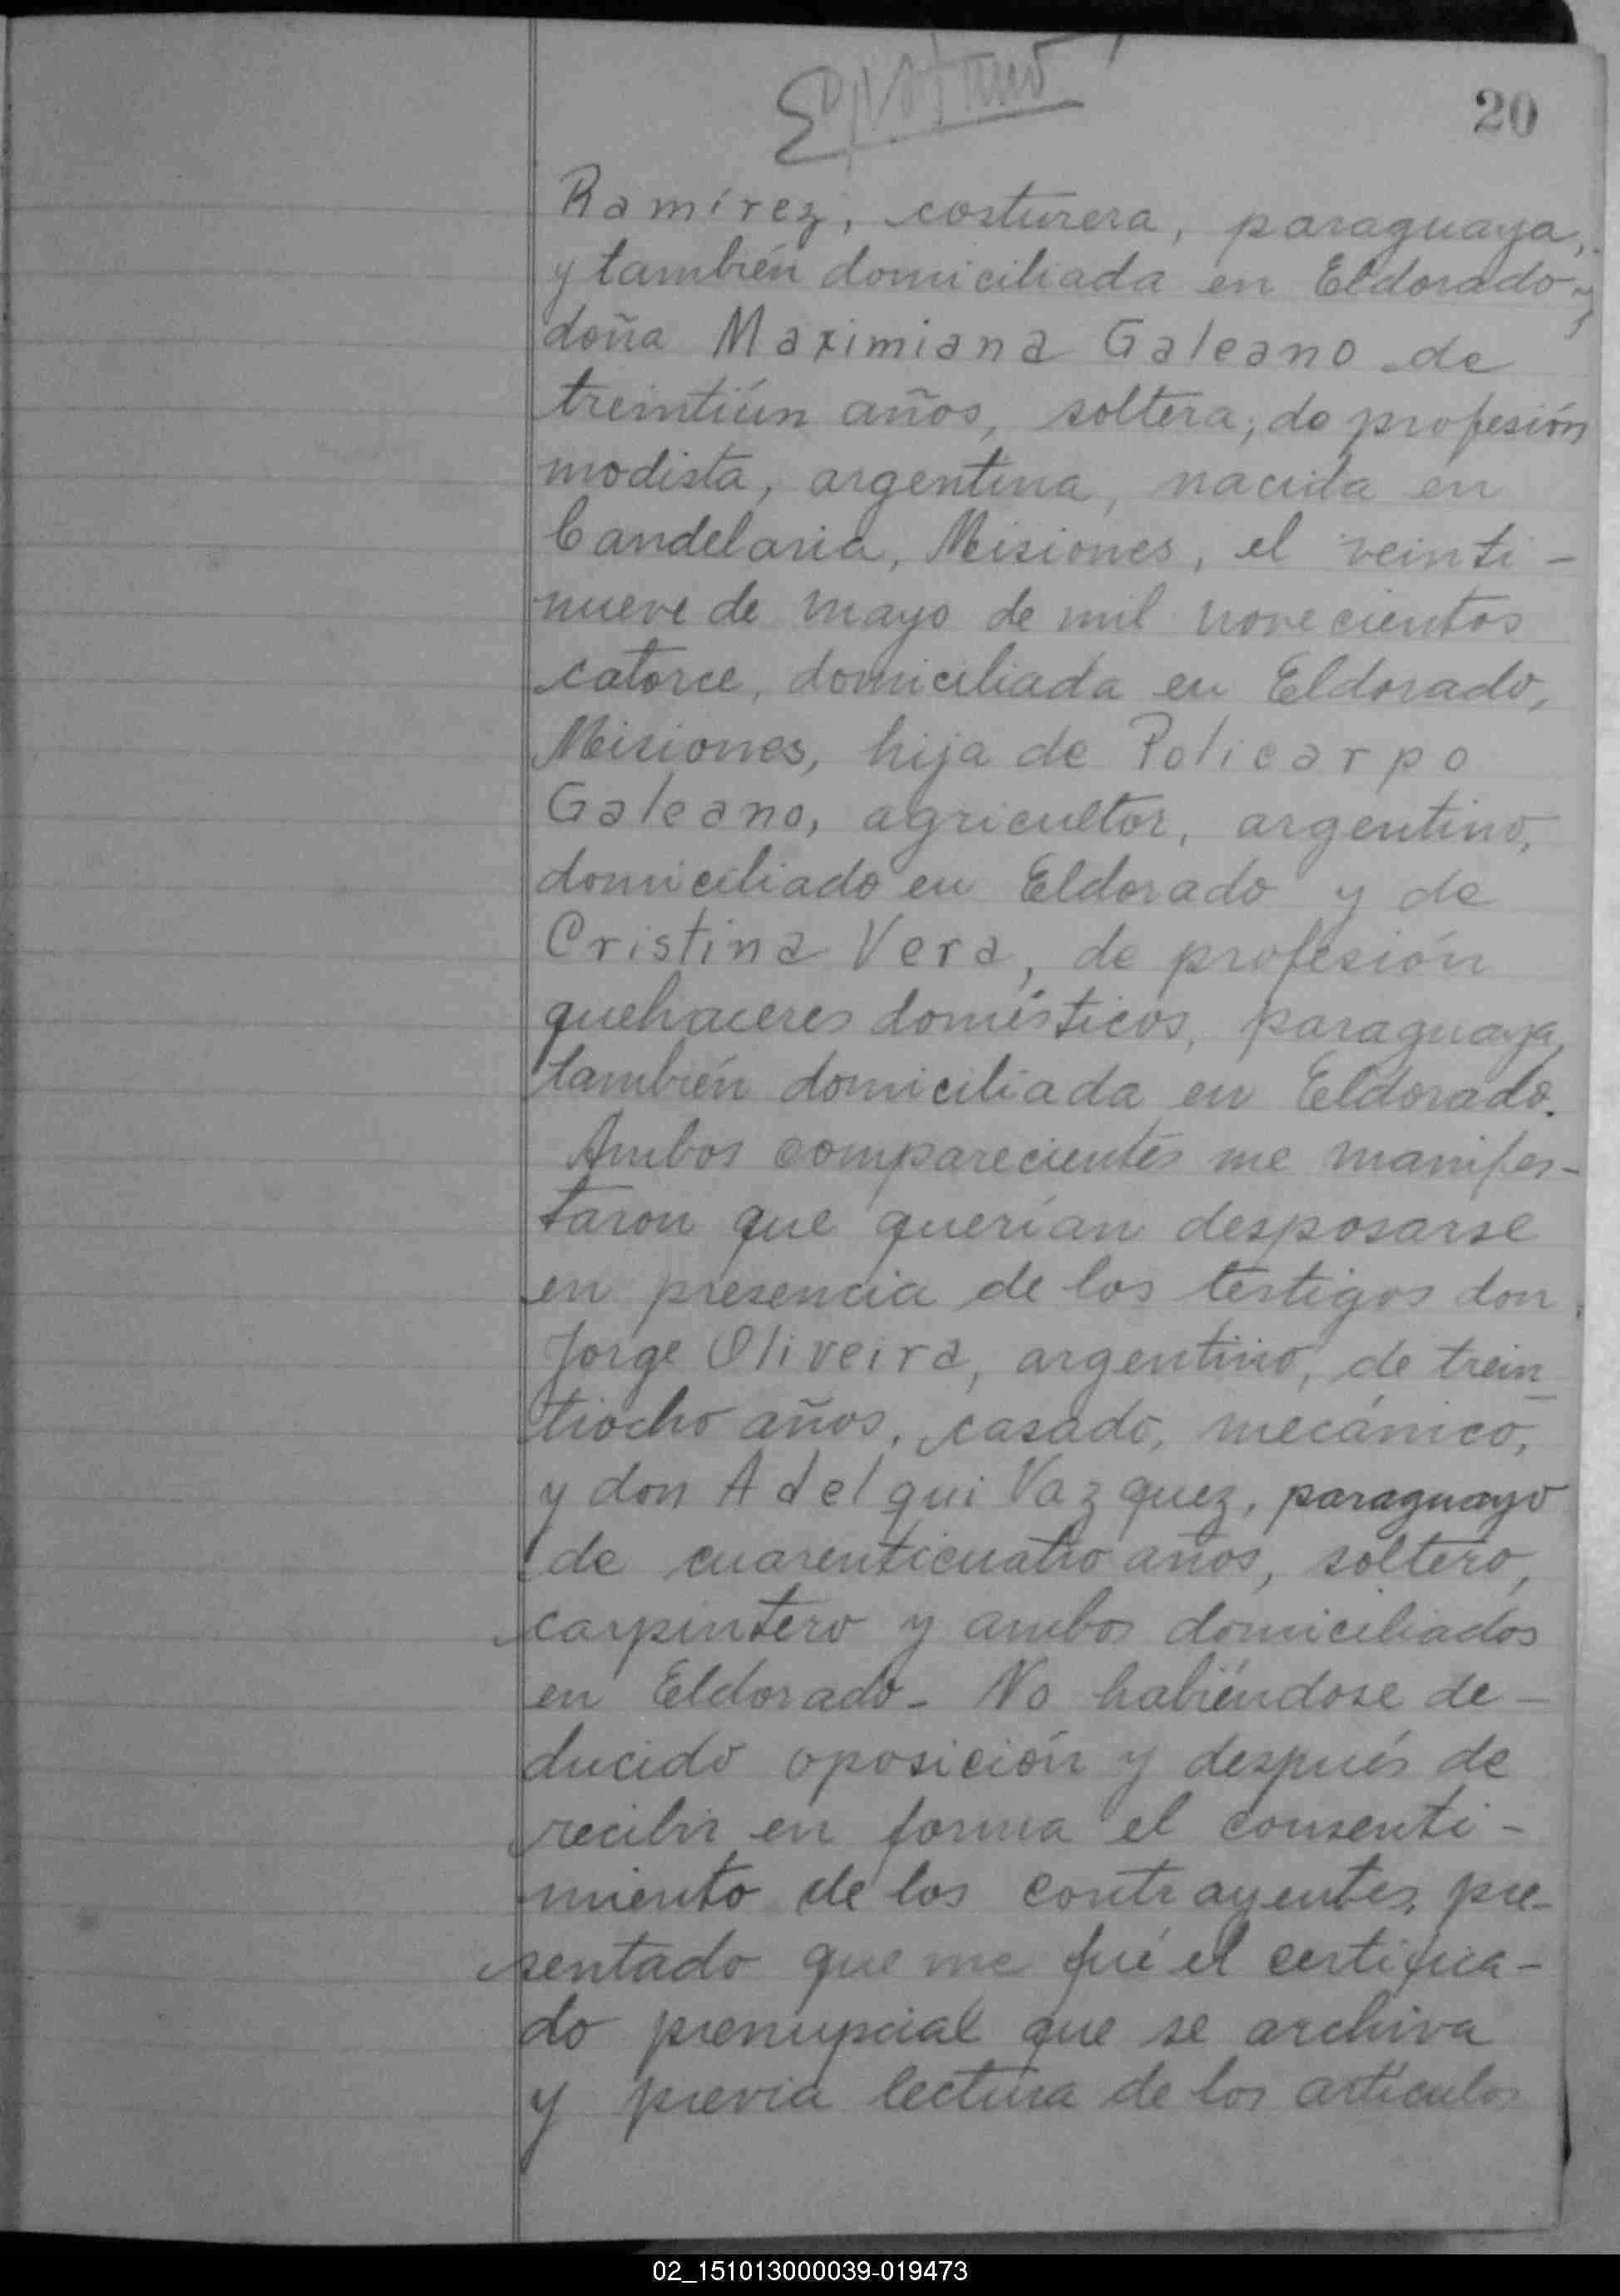 20
Ramírez, costurera, paraguaya,
y también domiciliada en Eldorado y
doña Maximiana Galeano de
treintiún años, soltera, de profesión
modista, argentina, nacida en
Candelaria, Misiones, el veinti-
nueve de mayo de mil novecientos
catorce, domiciliada en Eldorado,
Misiones, hija de Policarpo
Galeano, agricultor, argentino,
domiciliado en Eldorado y de
Cristina Vera, de profesión
quehaceres domésticos, paraguaya,
también domiciliada en Eldorado.
Ambos comparecientes me manifes-
taron que querían desposarse
en presencia de los testigos don
Jorge Oliveira, argentino, de trein-
tiocho años, casado, mecánico,
y don Adelqui Vazquez, paraguayo
de cuarenticuatro años, soltero,
carpintero y ambos domiciliados
en Eldorado- No habiéndose de-
ducido oposición y después de
recibir en forma el consenti-
miento de los contrayentes, pre-
sentado que me fué el certifica-
do prenupcial que se archiva
y previa lectura de los artículos
02_151013000039-019473